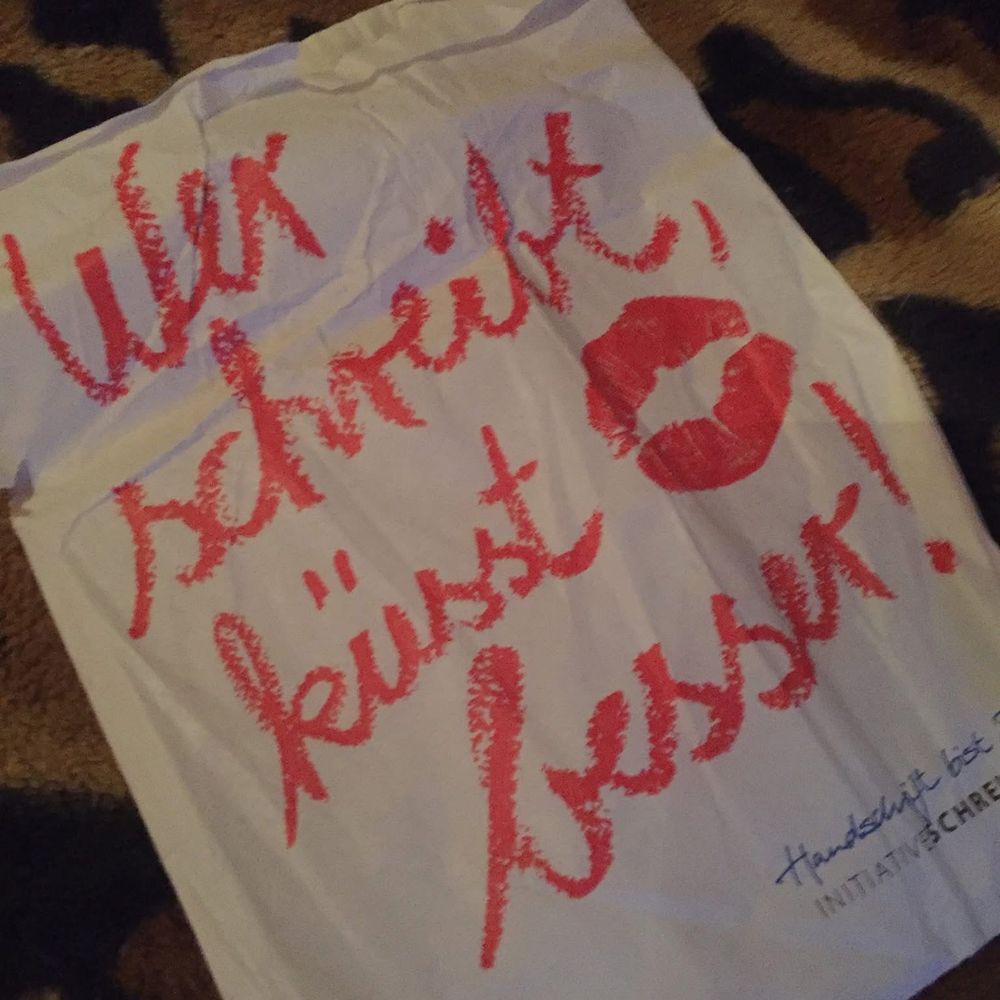 Wer
schreibt,
küsst
besser!
Handschrift bist
INITIATIVE